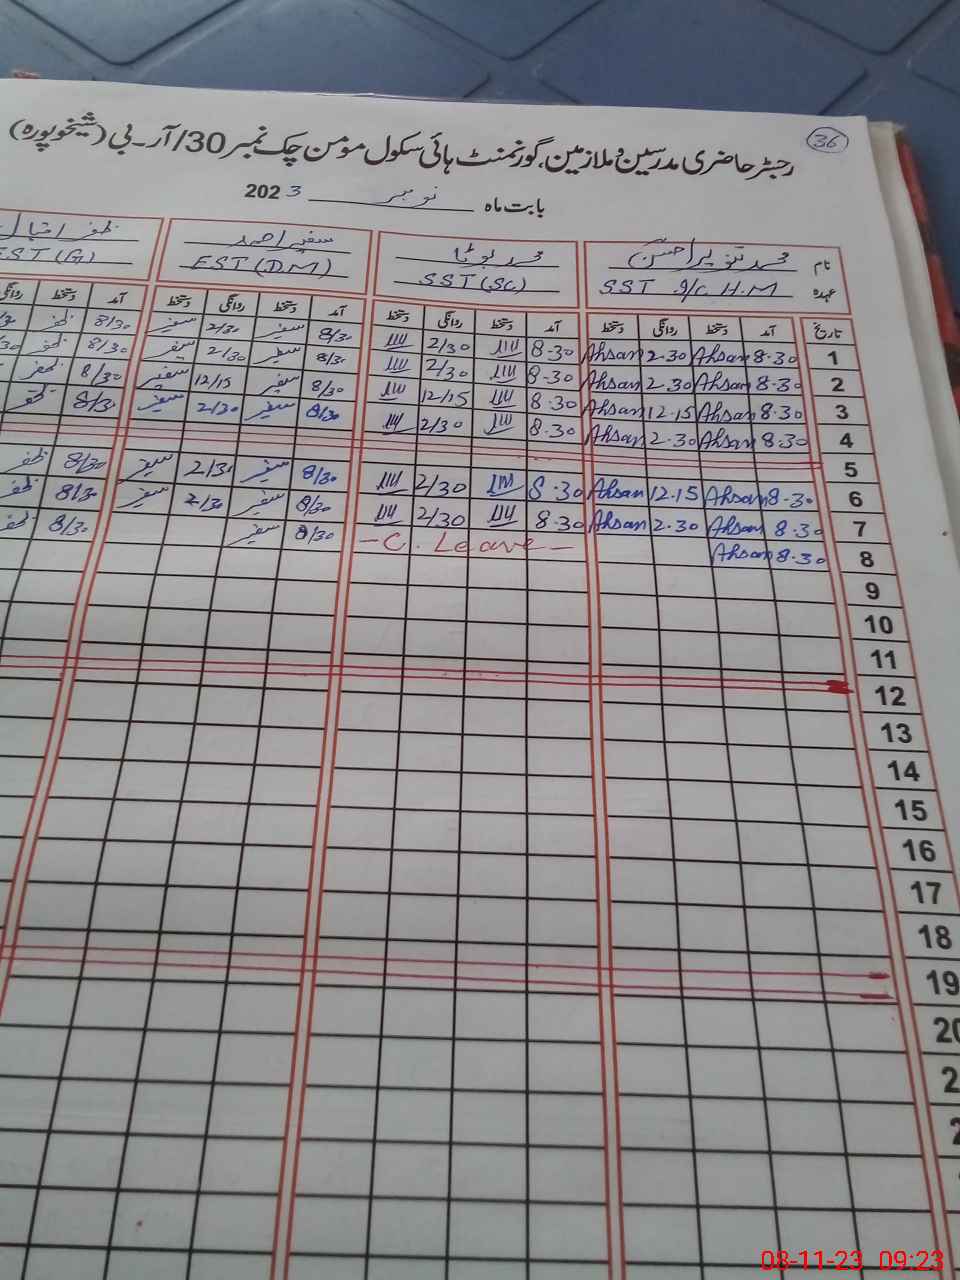 36
رجسٹر حاضری مدرسین و ملازمین، گورنمنٹ ہائی سکول مومن چک نمبر 30/آر۔بی (شیخوپورہ)
بابت ماہ نومبر 2023
نام محمد تنویر احسن محمد بوٹا سفیر احمد ظفر اقبال
عہدہ SST I/C H.M SST (SC) EST (DM) EST (G)
تاریخ آمد دستخط روانگی دستخط آمد دستخط روانگی دستخط آمد دستخط روانگی دستخط آمد دستخط روانگی
1 8.30 Ahsan 2.30 Ahsan 8.30 2/30 8/30 سفیر 2/30 سفیر 8/30 ظفر
2 8.30 Ahsan 2.30 Ahsan 8.30 2/30 8/30 سفیر 2/30 سفیر 8/30 ظفر
3 8.30 Ahsan 12.15 Ahsan 8.30 12/15 8/30 سفیر 12/15 سفیر 8/30 ظفر
4 8.30 Ahsan 2.30 Ahsan 8.30 2/30 8/30 سفیر 2/30 سفیر 8/30 ظفر
5
6 8.30 Ahsan 12.15 Ahsan 8.30 2/30 8/30 سفیر 2/31 سفیر 8/30 ظفر
7 8.30 Ahsan 2.30 Ahsan 8.30 2/30 8/30 سفیر 2/30 سفیر 8/30 ظفر
8 8.30 Ahsan - C. Leave - 8/30 سفیر 8/30 ظفر
9
10
11
12
13
14
15
16
17
18
19
08-11-23 09:23